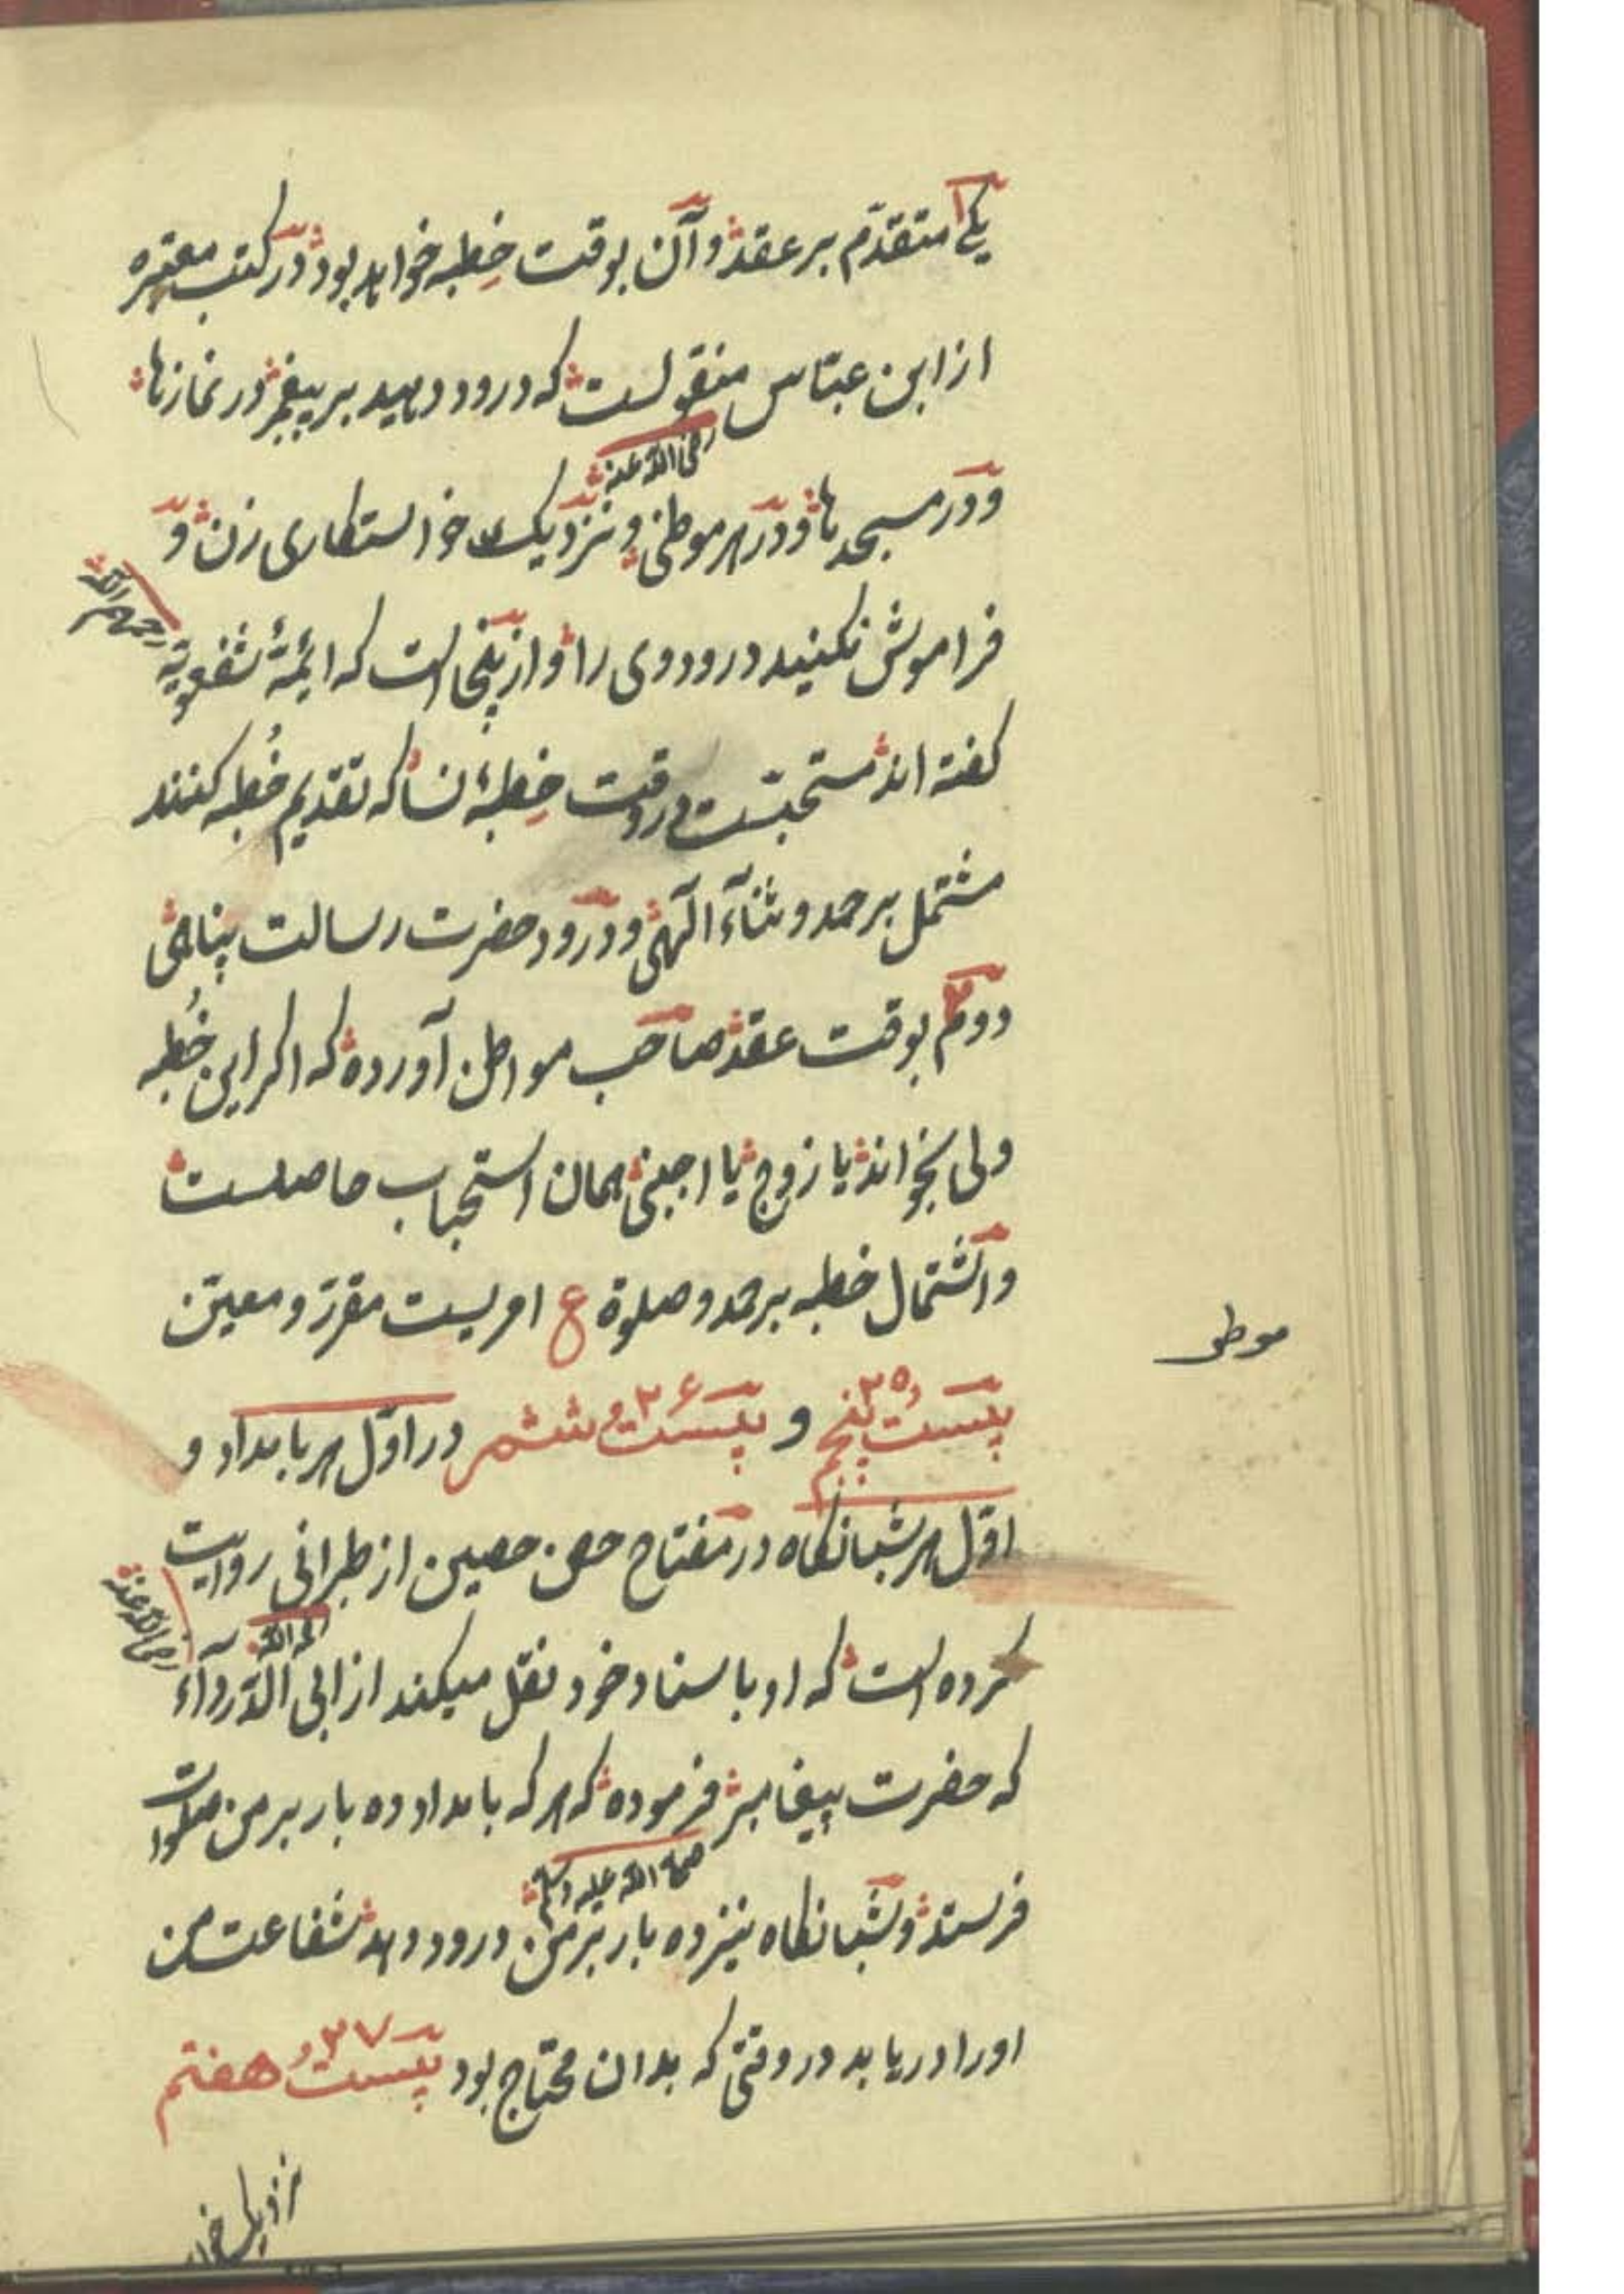 یکی ۱ متقدّم بر عقد و آن بوقت خِطبه خواهد بود در کتب معتبره
از ابن عبّاس منقولست که درود دهید بر پیغمبر در نمازها
رضی الله عنه
و در مسجدها و در هر موطنی و نزدیک خواستکاری زن و
فراموش نکنید درود وی را و از ینجاست که ائمّهٔ شفعویّه
رحمهم الله
کفته اند مستحبّست در وقت خِطبهٔ نسا که تقدیم خُطبه کنند
مشتمل بر حمد و ثنآء الٓهی و درود حضرت رسالت پناهی
دوم ۲ بوقت عقد صاحب مواطن آورده که اکر این خُطبه
ولی بخواند یا زوج یا اجنبی همان استحباب حاصلست
و اشتمال خطبه بر حمد و صلوة ع امریست مقرّر و معیّن
موطن
بیست و پنجم ۲۵ و بیست و ششم ۲۶ در اوّل هر بامداد و
اوّل هر شبانکاه در مفتاح حصن حصین از طبرانی روایت
رحمه الله
کرده است که او باسناد خود نقل میکند از ابی الدّردآء
رضی الله عنه
که حضرت پیغامبر فرموده که هر که بامداد ده بار بر من صلوات
صلی الله علیه وسلم
فرستد و شبانکاه نیز ده بار بر من درود دهد شفاعت من
او را دریابد در وقتی که بدان محتاج بود بیست و هفتم ۲۷
نزدیک